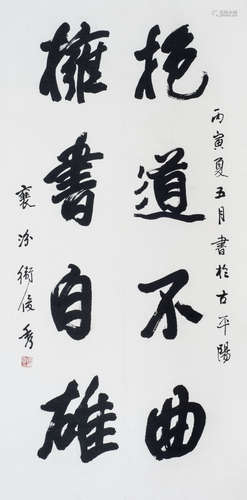 丙寅夏五月書於古平陽
抱道不曲
擁書自雄
襄汾衛俊秀